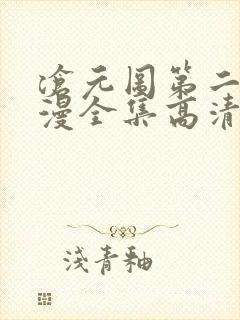 滄元圖第二
漫全集高清
淺青釉